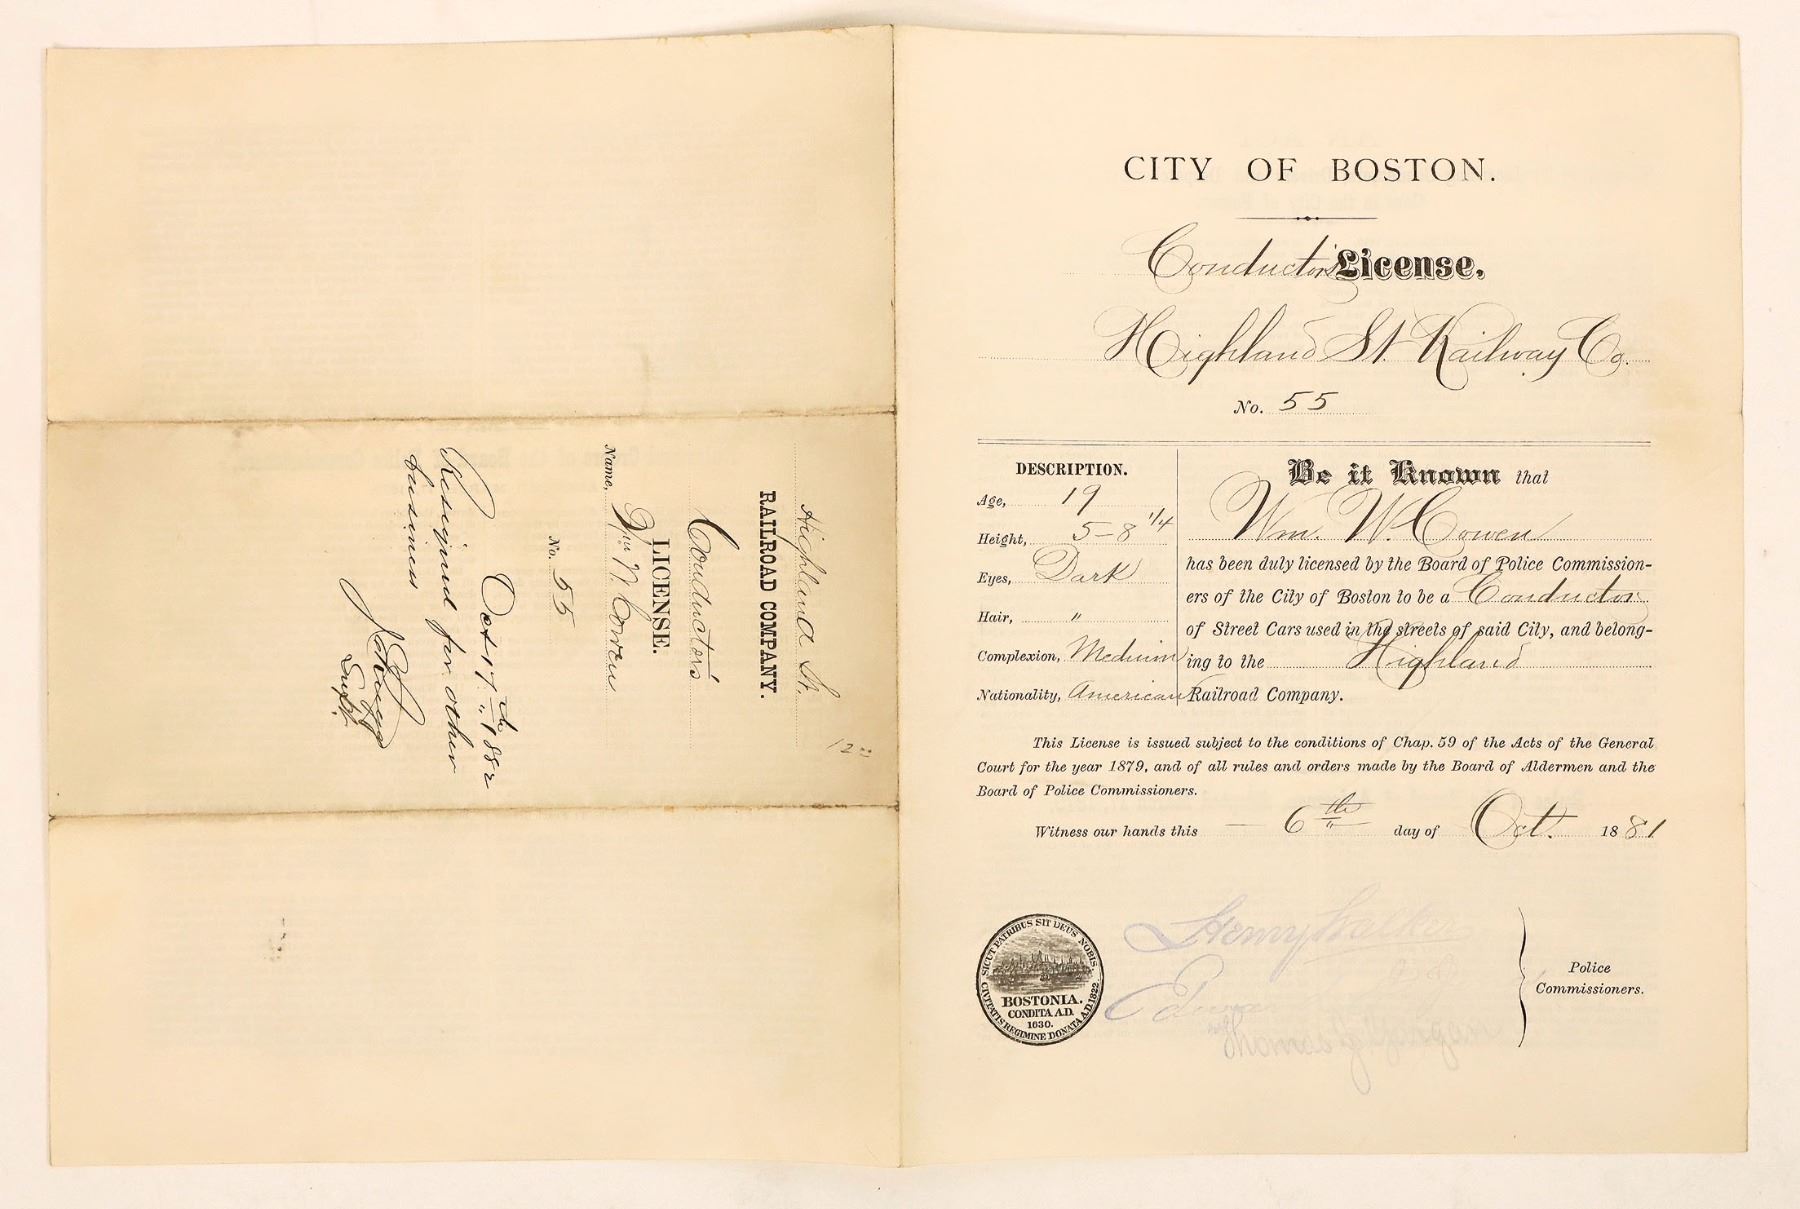 Highland St.
RAILROAD COMPANY.
Conductor's
LICENSE.
Name, Wm W. Cowen
No. 55
Oct 17th 1882
Resigned for other
business
Supt.
12
CITY OF BOSTON.
Conductor's License,
Highland St. Railway Co.
No. 55
DESCRIPTION.
Age, 19
Height, 5-8 1/4
Eyes, Dark
Hair, "
Complexion, Medium
Nationality, American
Be it Known that
Wm. W. Cowen
has been duly licensed by the Board of Police Commission-
ers of the City of Boston to be a Conductor
of Street Cars used in the streets of said City, and belong-
ing to the Highland
Railroad Company.
This License is issued subject to the conditions of Chap. 59 of the Acts of the General
Court for the year 1879, and of all rules and orders made by the Board of Aldermen and the
Board of Police Commissioners.
Witness our hands this 6th day of Oct. 1881
Henry Walker
Edward
Thomas J.
Police
Commissioners.
SICUT PATRIBUS SIT DEUS NOBIS.
BOSTONIA.
CONDITA A.D.
1630.
CIVITATIS REGIMINE DONATA A.D. 1822.